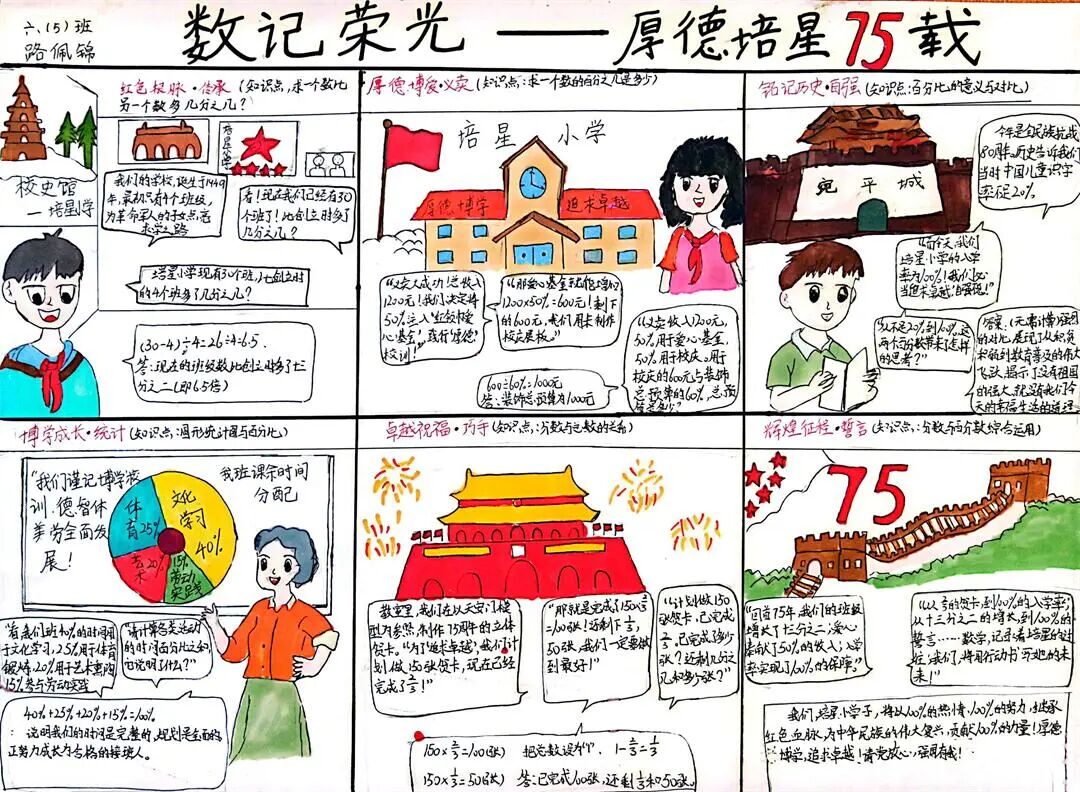 六、(5)班
路佩锦
数记荣光——厚德培星75载
红色根脉·传承(知识点:求一个数比
另一个数多几分之几?
校史馆
—培星学
培星小学
我们的学校,诞生于1949
年,最初只有4个班级,
为革命军人的子女点亮
求学之路
看!现在我们已经有30
个班了!比创立时多了
几分之几?
培星小学现有30个班,比创立时
的4个班多了几分之几?
(30-4)÷4=26÷4=6.5
答:现在的班级数比创立时多了十
三分之二(即6.5倍)
厚德博爱·义卖(知识点:求一个数的百分之几是多少)
培星小学
厚德博学 追求卓越
"义卖大成功!总收入
1200元!我们决定将
50%注入'红领巾爱
心基金',践行'厚德'
校训!
"那爱心基金就能增加
1200×50%=600元!剩下
的600元,我们用来制作
校庆展板。"
"义卖收入1200元,
50%用于爱心基金,
50%用于校庆。用于
校庆的600元占装饰
总预算的60%,总预
算是多少?
600÷60%=1000元
答:装饰总预算为1000元
铭记历史·自强(知识点:百分比的意义与对比)
宛平城
今年是全民族抗战
80周年。历史告诉我们
当时中国儿童识字
率不足20%。
"而今天,我们
培星小学的入学
率为100%!我们必
当追求卓越'自强说!"
"从不足20%到100%,这
两个百分数带来了怎样
的思考?"
答案:(无需计算)强烈
的对比,展现了从积贫
积弱到教育普及的伟大
飞跃,揭示了没有祖国
的强大,就没有我们今
天的幸福生活的道理
博学成长·统计(知识点:扇形统计图与百分比)
"我们谨记'博学'校
训,德智体
美劳全面发
展!
我班课余时间
分配
文化
学习
40%
体
育25%
艺术20%
15%
劳动
实践
看我们班40%的时间用
于文化学习,25%用于体育
锻炼,20%用于艺术熏陶
15%参与劳动实践
"请计算各类活动
的时间百分比之和
并说明了什么?"
40%+25%+20%+15%=100%
:说明我们的时间是完整的,规划是全面的
正努力成长为合格的接班人。
卓越祝福·巧手(知识点:分数与总数的关系)
教室里,我们在以天安门模
型为参照,制作75周年的立体
贺卡。"为了'追求卓越',我们计
划做150张贺卡,现在已经
完成了2/3!"
"那就是完成了150×2/3
=100张!还剩下1/3,
50张,我们一定要做
到最好!"
"计划做150
张贺卡,已完成
2/3。已完成多少
张?还剩几分之
几和多少张?"
150×2/3=100(张) 把总数设为"1", 1-2/3=1/3
150×1/3=50(张) 答:已完成100张,还剩1/3和50张。
辉煌征程·誓言(知识点:分数与百分数综合运用)
75
"回首75年,我们的班级
增长了十三分之二;爱心
奉献了50%的收入;入学
率实现了100%的保障。"
"从2/3的贺卡,到100%的入学率;
从十三分之二的增长,到100%的
誓言……数学,记录着培星的过
往;我们,将用行动书写她的未
来!"
我们,培星小学子,将以100%的热情,100%的努力,继承
红色血脉,为中华民族的伟大复兴,贡献100%的力量!厚德
博学,追求卓越!请党放心,强国有我!